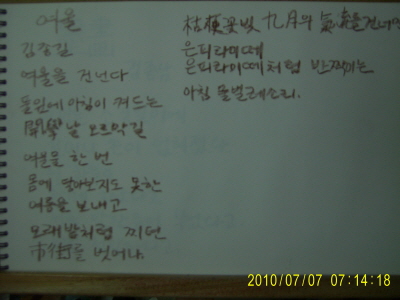 여울
김종길
여울을 건넌다
풀잎에 아침이 켜드는
開學날 오르막길
여울물 한 번
몸에 닿아보지도 못한
여름을 보내고
모래밭처럼 찌던
市街를 벗어나,
桔梗꽃빛 九月의 氣流를 건너면
은피라미떼
은피라미떼처럼 반짝이는
아침 풀벌레소리.
2010/07/07 07:14:18